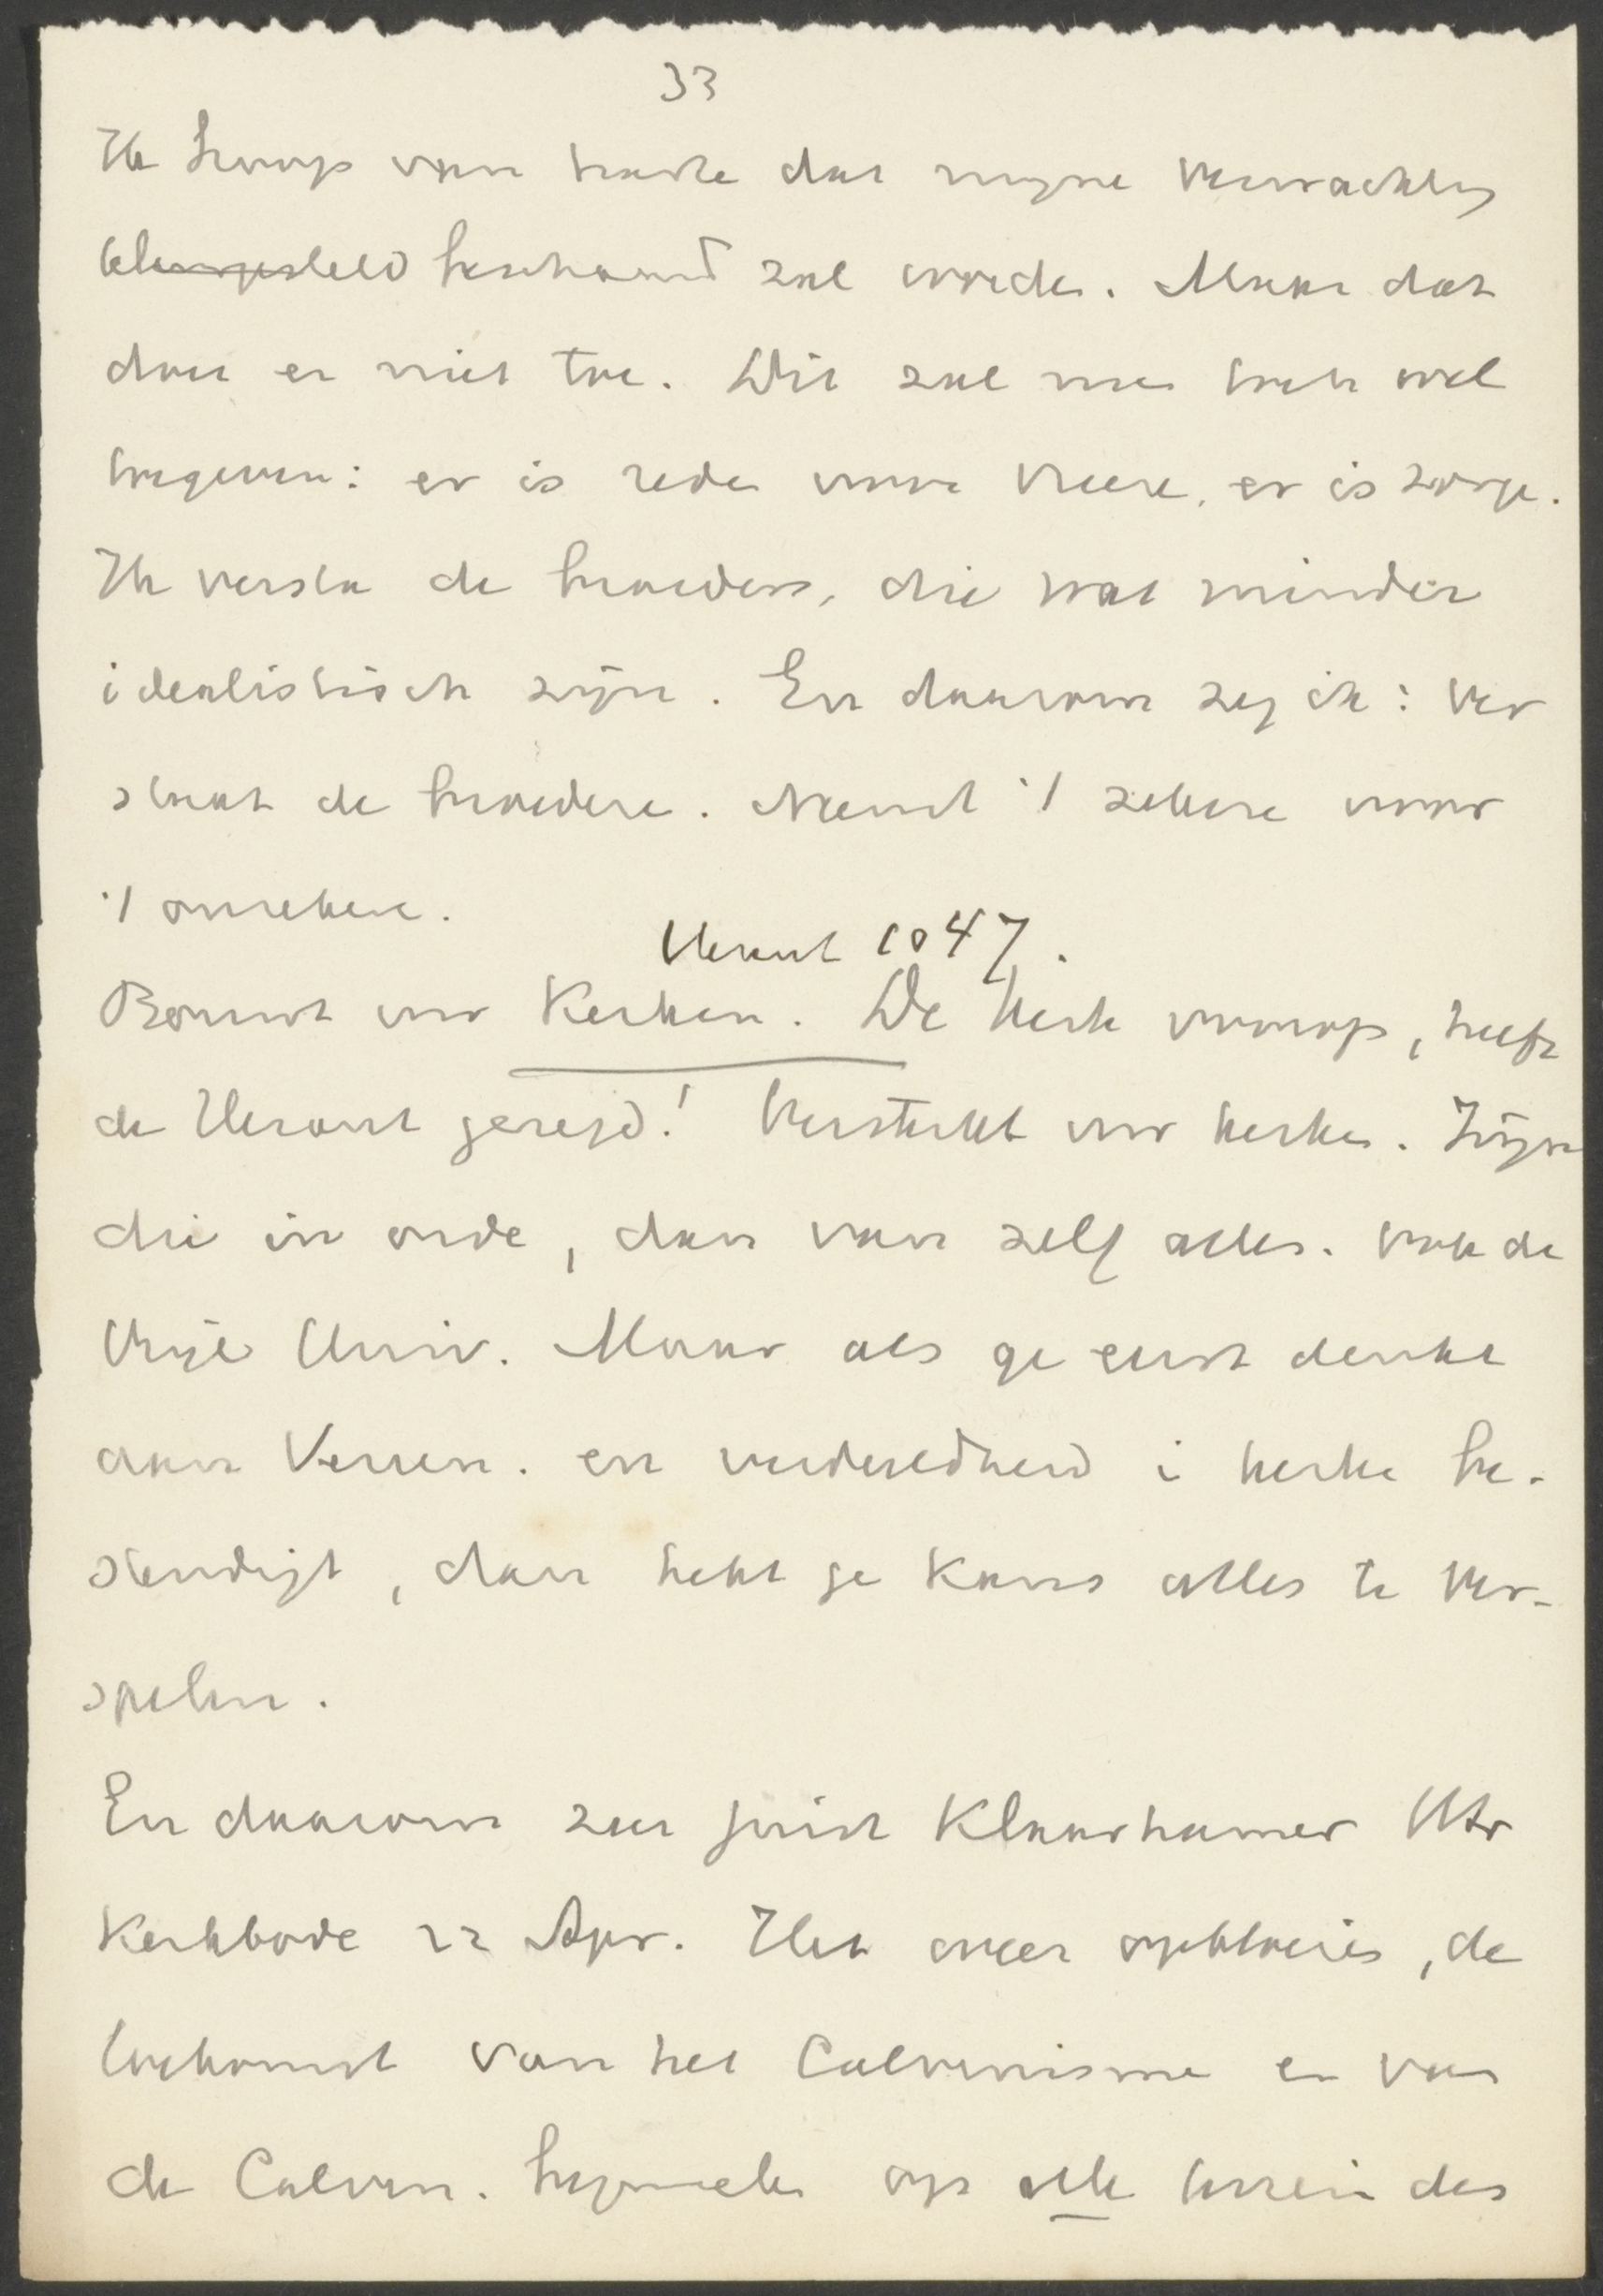 33
Ik hoop van harte dat mijne verwachting
beschaamd zal worden. Maar dat
doet er niet toe. Dit zal men toch wel
toegeven: er is reden voor vreeze, er is zorge.
Ik versta de broeders, die wat minder
idealistisch zijn. En daarom zeg ik: ver
staat de broeders. Neemt 't zekere voor
't onzekere.
Heraut 1047.
Bouwt uw Kerken. De Kerk voorop, heeft
de Heraut gezegd! Versterkt uw kerken. Zijn
die in orde, dan van zelf alles. Ook de
Vrije Univ. Maar als ge eerst denkt
aan Vereen. en verdeeldheid i kerken be-
stendigt, dan hebt ge kans alles te ver-
spelen.
En daarom zeer juist Klaarhamer Utr
Kerkbode 22 Apr. Het weer opbloeien, de
toekomst van het Calvinisme en van
de Calvin. beginselen op alle terrein des